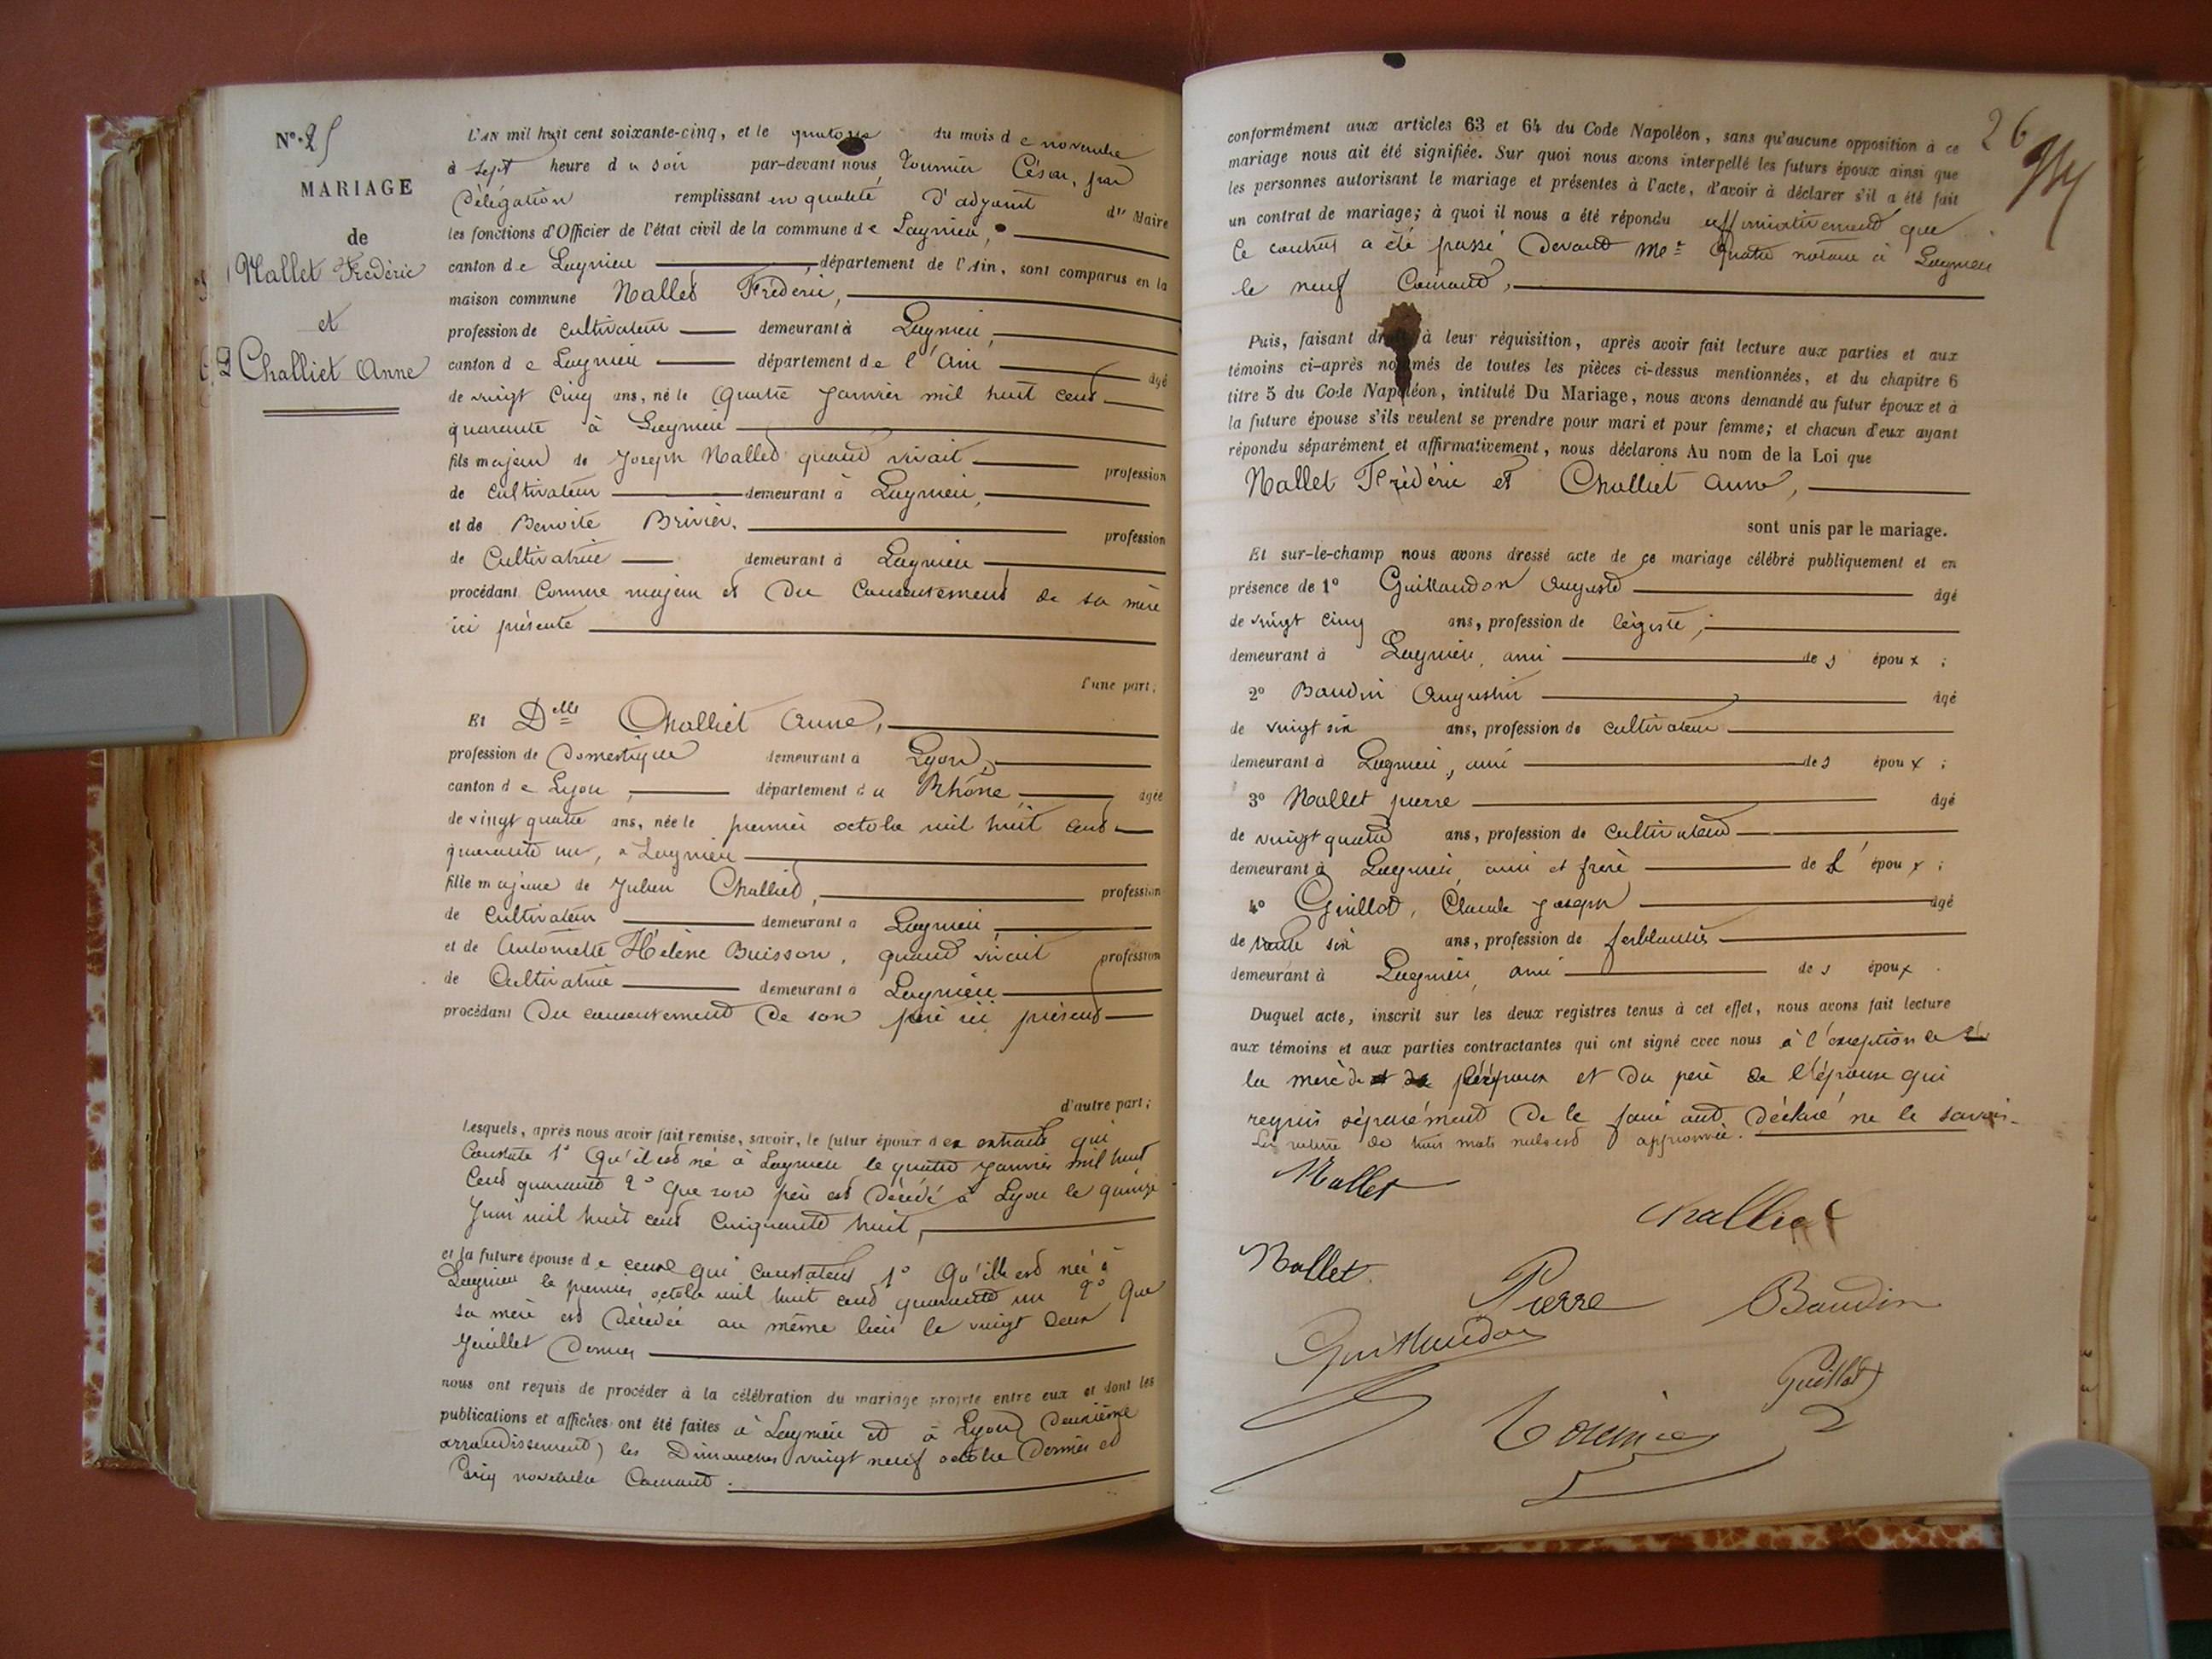 N° 25
MARIAGE
de
Nallet Frédéric
et
Challiet Anne
L'AN mil huit cent soixante-cinq, et le quatorze du mois de novembre
à sept heure du soir par-devant nous Tournier César, par
Délégation remplissant en qualité d'adjoint du Maire
les fonctions d'Officier de l'état civil de la commune de Lagnieu,
canton de Lagnieu, département de l'Ain, sont comparus en la
maison commune Nallet Frédéric,
profession de cultivateur demeurant à Lagnieu,
canton de Lagnieu département de l'Ain âgé
de vingt cinq ans, né le quatre janvier mil huit cent
quarante à Lagnieu
fils majeur de Joseph Nallet quand vivait profession
de cultivateur demeurant à Lagnieu,
et de Benoite Brivier, profession
de Cultivatrice demeurant à Lagnieu
procédant Comme majeur et du Consentement de sa mère
ici présente
l'une part;
Et Delle Challiet Anne,
profession de Domestique demeurant à Lyon,
canton de Lyon, département du Rhône âgée
de vingt quatre ans, née le premier octobre mil huit cent
quarante un, à Lagnieu
fille majeure de Julien Challiet, profession
de Cultivateur demeurant à Lagnieu
et de Antoinette Hélène Buisson, quand vivait profession
de Cultivatrice demeurant à Lagnieu
procédant Du consentement de son père ici présent
d'autre part;
Lesquels, après nous avoir fait remise, savoir, le futur époux d'ex extraits qui
Constate 1° Qu'il est né à Lagnieu le quatre janvier mil huit
Cent quarante 2° que son père est Décédé à Lyon le quinze
Juin mil huit cent Cinquante huit,
et la future épouse de ceux qui Constatent 1° Qu'elle est née à
Lagnieu le premier octobre mil huit cent quarante un 2° Que
sa mère est Décédée au même lieu le vingt deux
Juillet Dernier
nous ont requis de procéder à la célébration du mariage projeté entre eux et dont les
publications et affiches ont été faites à Lagnieu et à Lyon Deuxième
arrondissement) les Dimanches vingt neuf octobre Dernier et
Cinq novembre Courant.
26
conformément aux articles 63 et 64 du Code Napoléon, sans qu'aucune opposition à ce
mariage nous ait été signifiée. Sur quoi nous avons interpellé les futurs époux ainsi que
les personnes autorisant le mariage et présentes à l'acte, d'avoir à déclarer s'il a été fait
un contrat de mariage; à quoi il nous a été répondu affirmativement que
le contrat a été passé Devant Me notaire à Lagnieu
le neuf Courant,
Puis, faisant droit à leur réquisition, après avoir fait lecture aux parties et aux
témoins ci-après nommés de toutes les pièces ci-dessus mentionnées, et du chapitre 6
titre 5 du Code Napoléon, intitulé Du Mariage, nous avons demandé au futur époux et à
la future épouse s'ils veulent se prendre pour mari et pour femme; et chacun d'eux ayant
répondu séparément et affirmativement, nous déclarons Au nom de la Loi que
Nallet Frédéric et Challiet Anne,
sont unis par le mariage.
Et sur-le-champ nous avons dressé acte de ce mariage célébré publiquement et en
présence de 1° Guillaudon Auguste âgé
de vingt cinq ans, profession de légiste,
demeurant à Lagnieu, ami des époux;
2° Baudin Augustin âgé
de vingt six ans, profession de cultivateur
demeurant à Lagnieu, ami des époux;
3° Nallet pierre âgé
de vingt quatre ans, profession de Cultivateur
demeurant à Lagnieu, ami et frère de l'époux;
4° Guillot, Claude Joseph âgé
de trente six ans, profession de ferblantier
demeurant à Lagnieu, ami des époux.
Duquel acte, inscrit sur les deux registres tenus à cet effet, nous avons fait lecture
aux témoins et aux parties contractantes qui ont signé avec nous à l'exception de
la mère de l'époux et du père de l'épouse qui
requis séparément de le faire ont Déclaré ne le savoir.
La rature de trois mots nuls est approuvée.
Nallet
Challiet
Nallet Pierre Baudin
Guillaudon
Guillot
Tournier